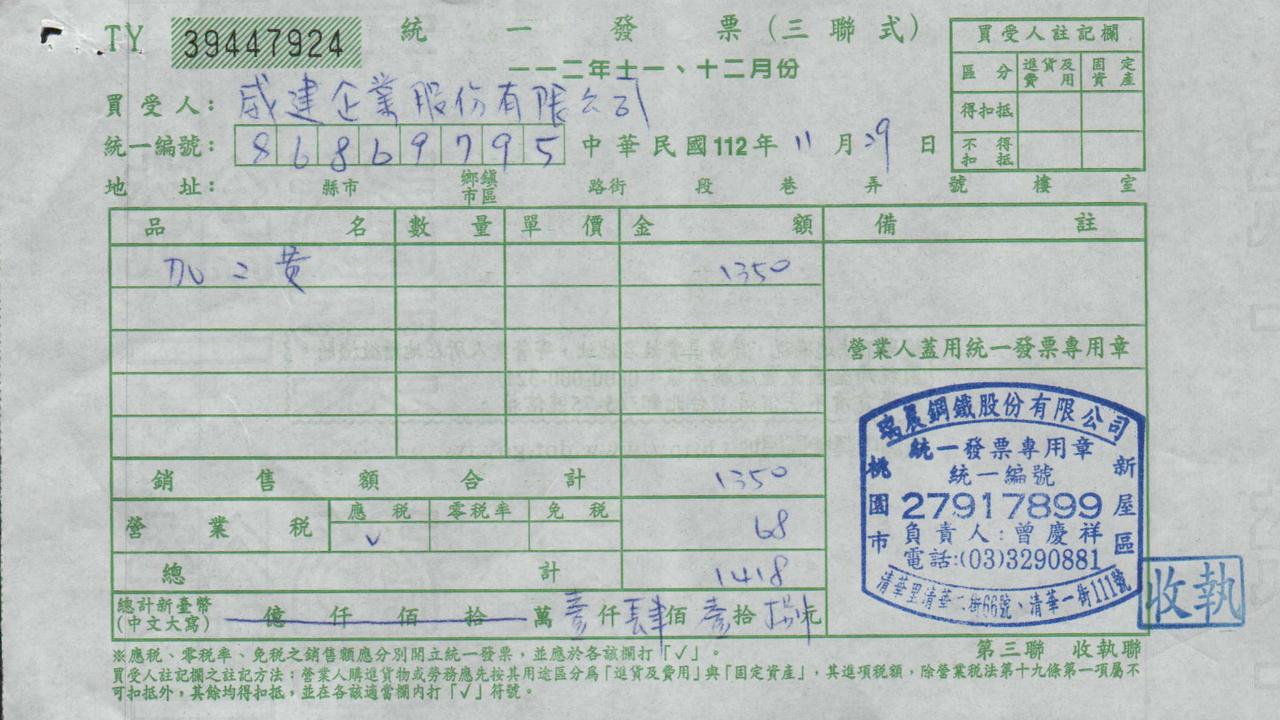 TY 39447924 統一發票(三聯式)
一一二年十一、十二月份
買受人註記欄
區分 進貨及費用 固定資產
得扣抵
不得扣抵
買受人: 威建企業股份有限公司
統一編號: 86869795 中華民國112年11月29日
地址: 縣市 鄉鎮市區 路街 段 巷 弄 號 樓 室
品名 數量 單價 金額 備註
加工費 1350
營業人蓋用統一發票專用章
銷售額合計 1350
營業稅 應稅 零稅率 免稅 68
✓
總計 1418
總計新臺幣(中文大寫) 億 仟 佰 拾 萬 壹仟肆佰壹拾捌元
瑞晨鋼鐵股份有限公司
統一發票專用章
統一編號
27917899
負責人:曾慶祥
電話:(03)3290881
桃園市
新屋區
清華里清華二街66號、清華一街111號
收執
第三聯 收執聯
※應稅、零稅率、免稅之銷售額應分別開立統一發票,並應於各該欄打「✓」。
買受人註記欄之註記方法:營業人購進貨物或勞務應先按其用途區分為「進貨及費用」與「固定資產」,其進項稅額,除營業稅法第十九條第一項屬不
可扣抵外,其餘均得扣抵,並在各該適當欄內打「✓」符號。